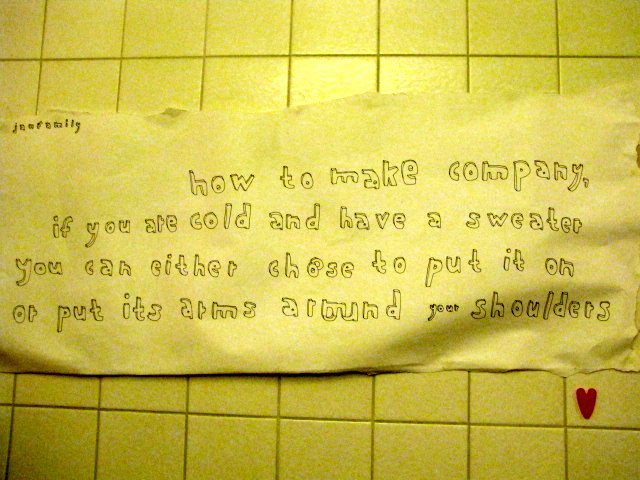 janfamily
how to make company,
if you are cold and have a sweater
you can either chose to put it on
or put its arms around your shoulders